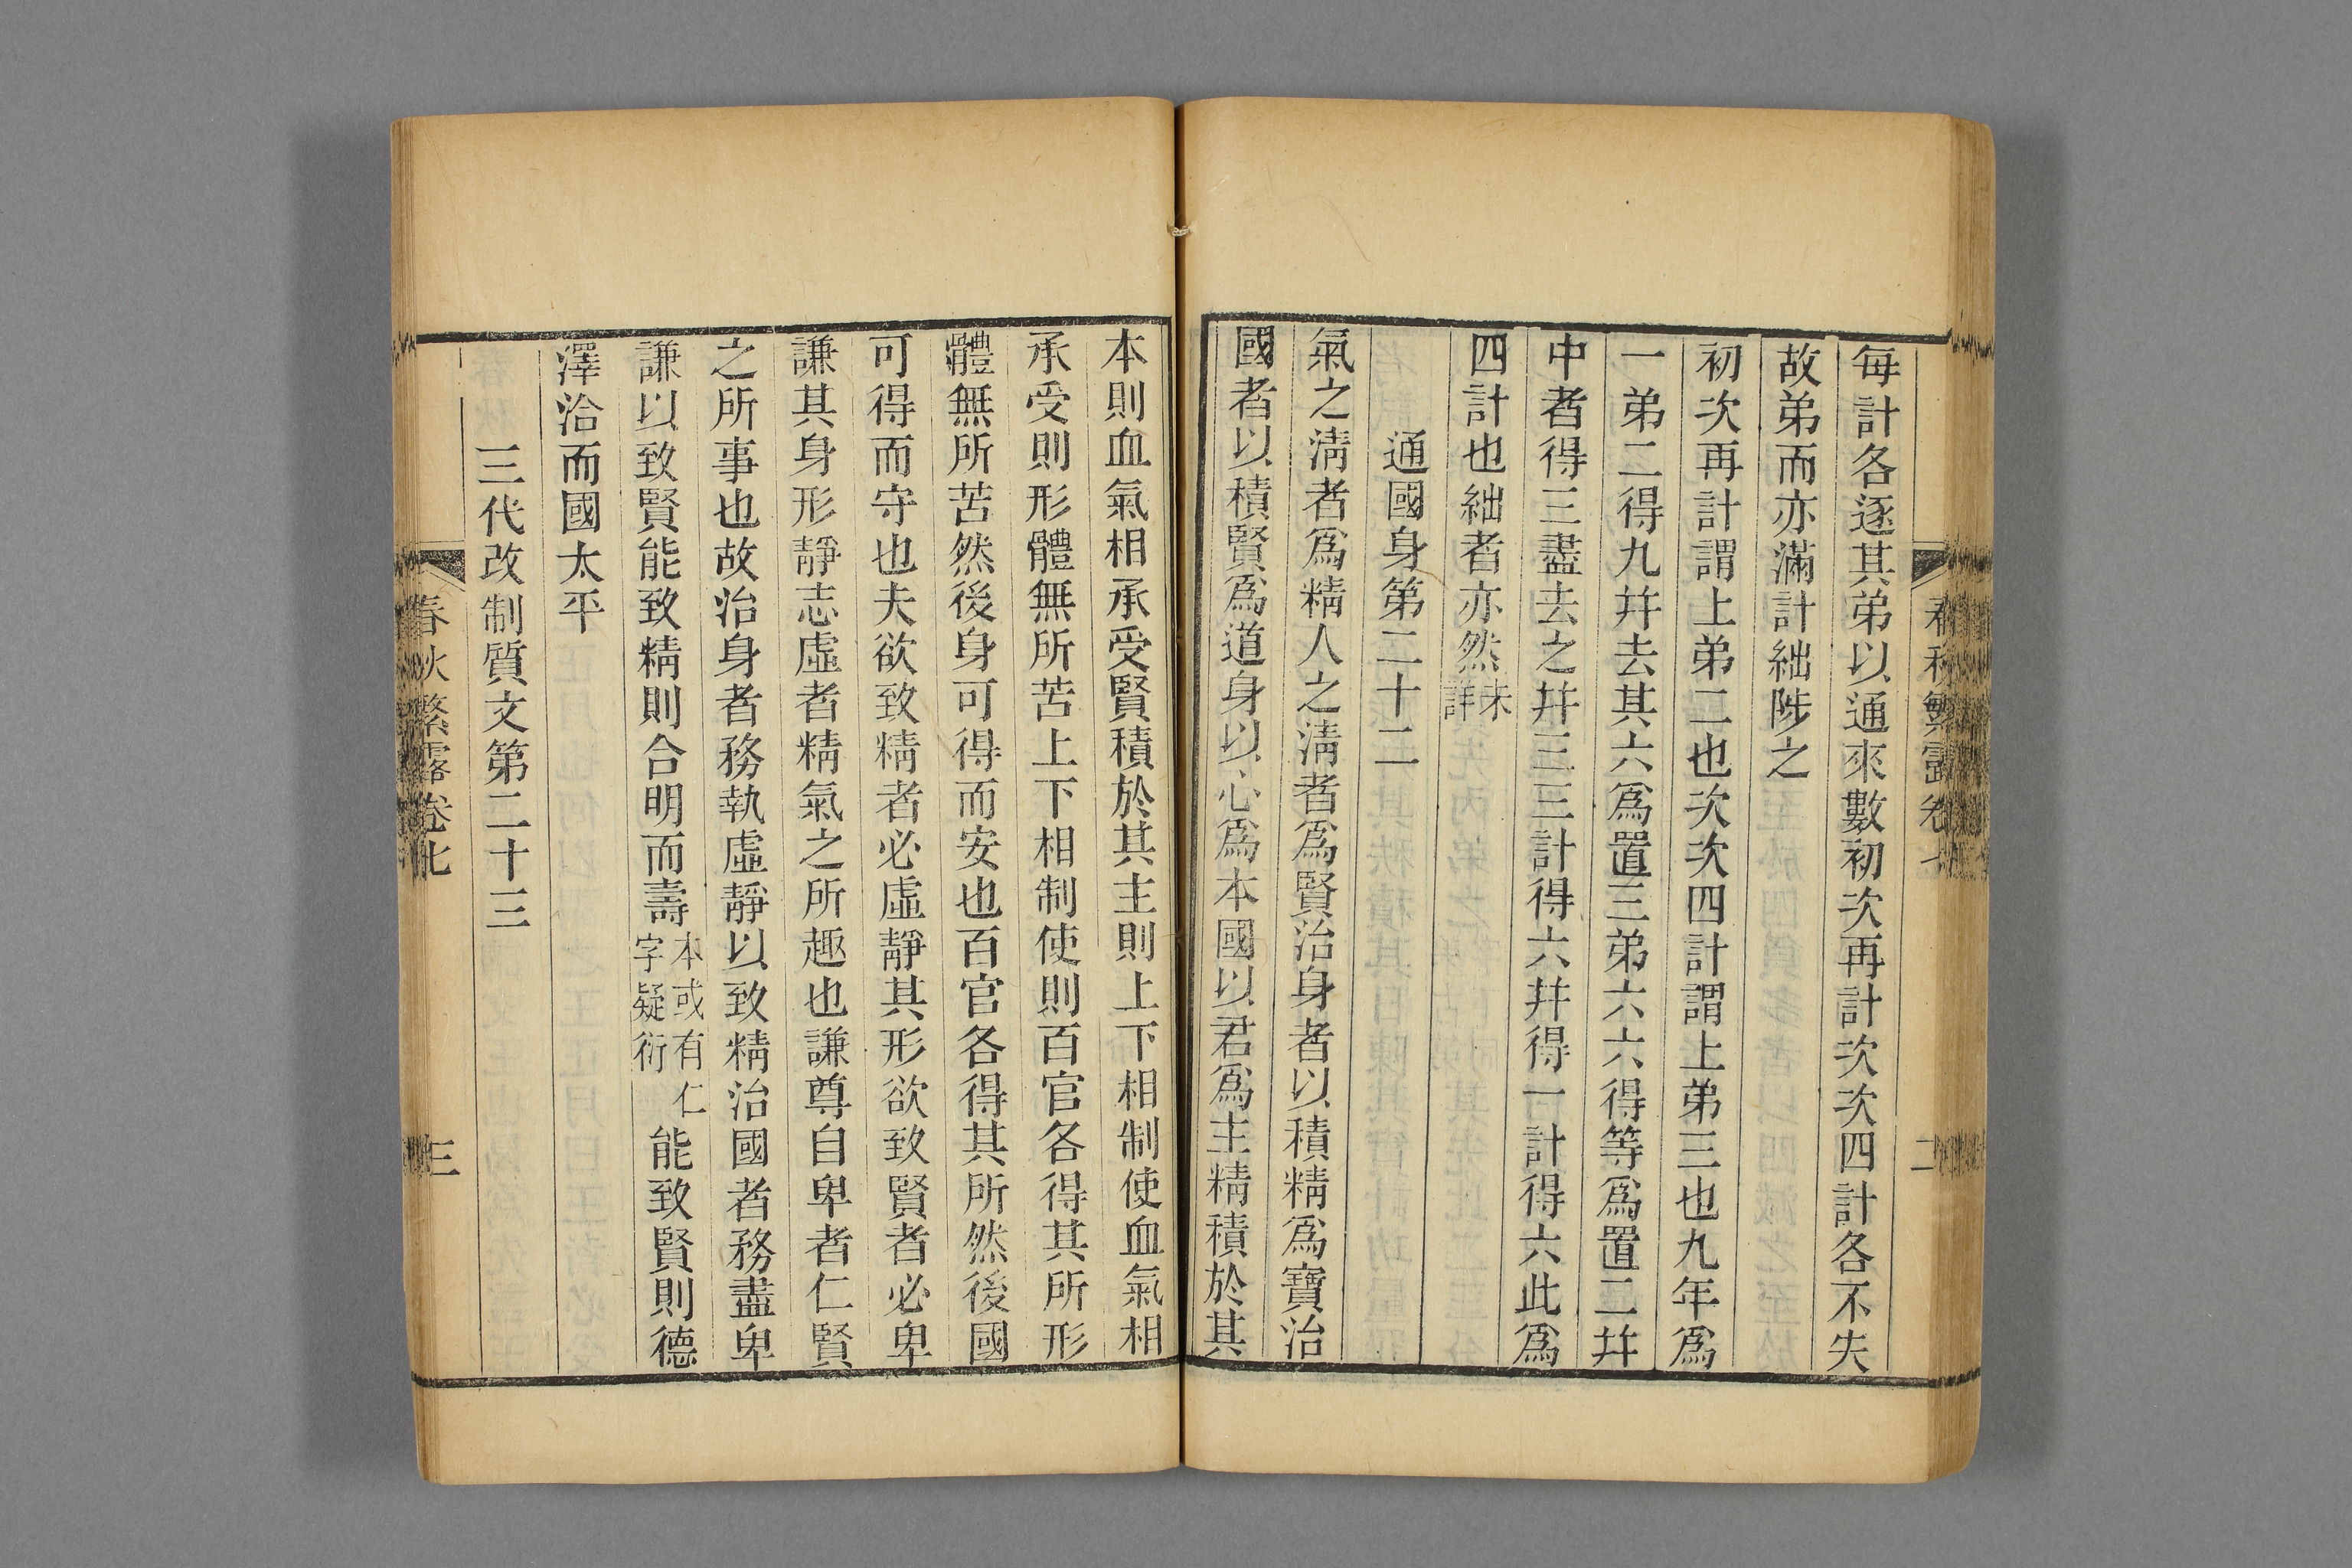 每計各逐其弟以通來數初次再計次次四計各不失
故弟而亦滿計絀陟之
初次再計謂上弟二也次次四計謂上弟三也九年爲
一弟二得九幷去其六爲置三弟六六得等爲置二幷
中者得三盡去之幷三三計得六幷得一計得六此爲
四計也絀者亦然未詳
通國身第二十二
氣之淸者爲精人之淸者爲賢治身者以積精爲寶治
國者以積賢爲道身以心爲本國以君爲主精積於其
本則血氣相承受賢積於其主則上下相制使血氣相
承受則形體無所苦上下相制使則百官各得其所形
體無所苦然後身可得而安也百官各得其所然後國
可得而守也夫欲致精者必虛靜其形欲致賢者必卑
謙其身形靜志虛者精氣之所趣也謙尊自卑者仁賢
之所事也故治身者務執虛靜以致精治國者務盡卑
謙以致賢能致精則合明而壽本或有仁字疑衍能致賢則德
澤洽而國太平
三代改制質文第二十三
春秋繁露卷七
三